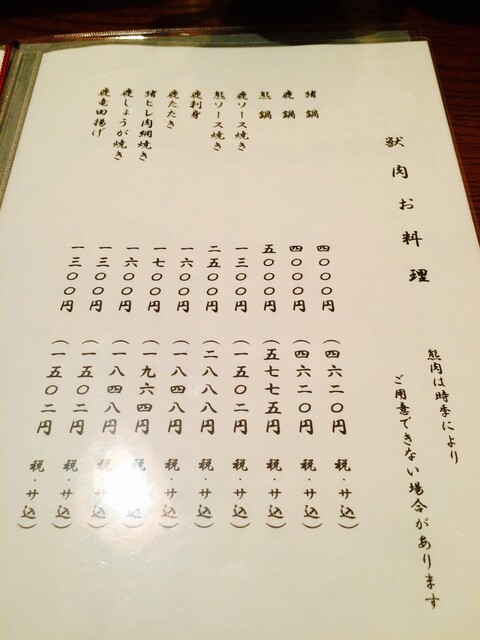 獣肉お料理
熊肉は時季により
ご用意できない場合があります
猪鍋 四〇〇〇円 (四六二〇円 税・サ込)
鹿鍋 四〇〇〇円 (四六二〇円 税・サ込)
熊鍋 五〇〇〇円 (五七七五円 税・サ込)
鹿ソース焼き 一三〇〇円 (一五〇二円 税・サ込)
熊ソース焼き 二五〇〇円 (二八八八円 税・サ込)
鹿刺身 一六〇〇円 (一八四八円 税・サ込)
鹿たたき 一七〇〇円 (一九六四円 税・サ込)
猪ヒレ肉網焼き 一六〇〇円 (一八四八円 税・サ込)
鹿しょうが焼き 一三〇〇円 (一五〇二円 税・サ込)
鹿竜田揚げ 一三〇〇円 (一五〇二円 税・サ込)